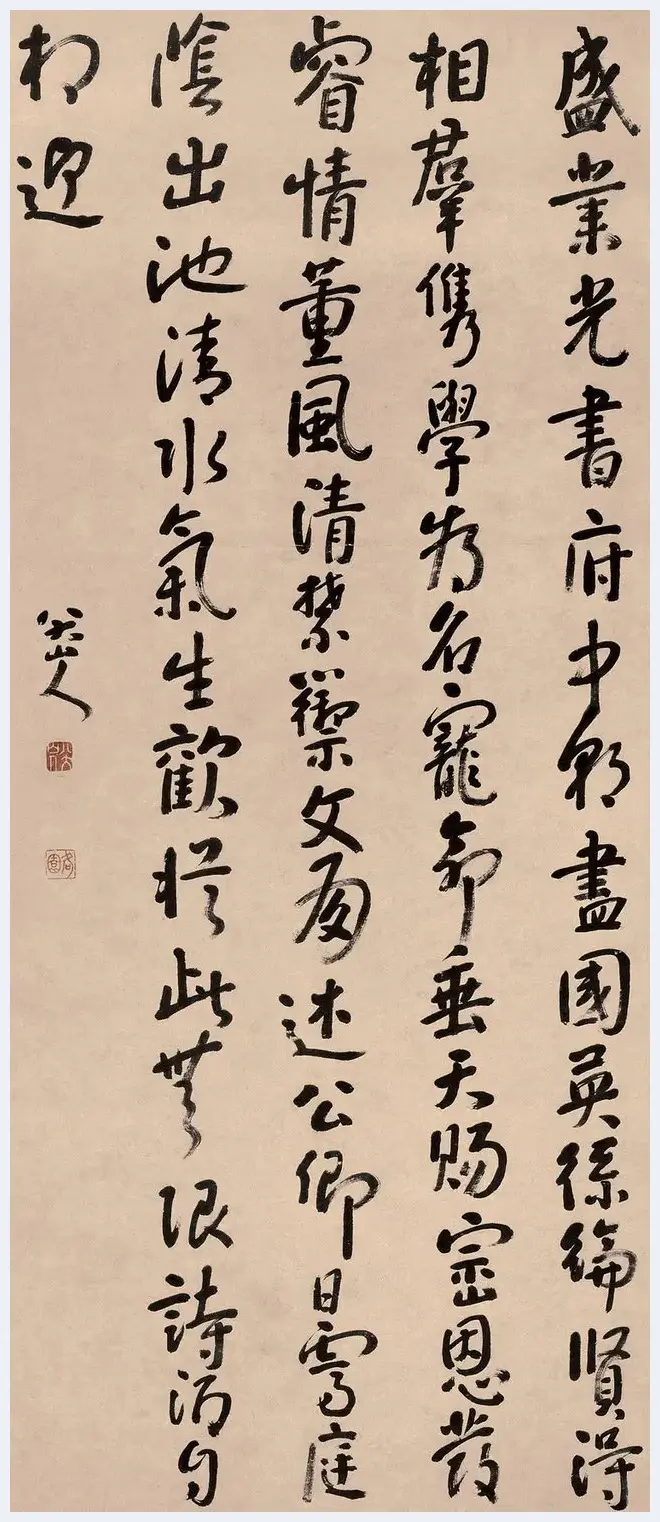 盛業光書府中朝盡國英絲綸賢得
相羣儁學為名寵命垂天賜崇恩發
睿情薰風清禁籞文房述公卿日霽庭
陰出池清水氣生歡從此無限詩酒自
相迎
八大山人